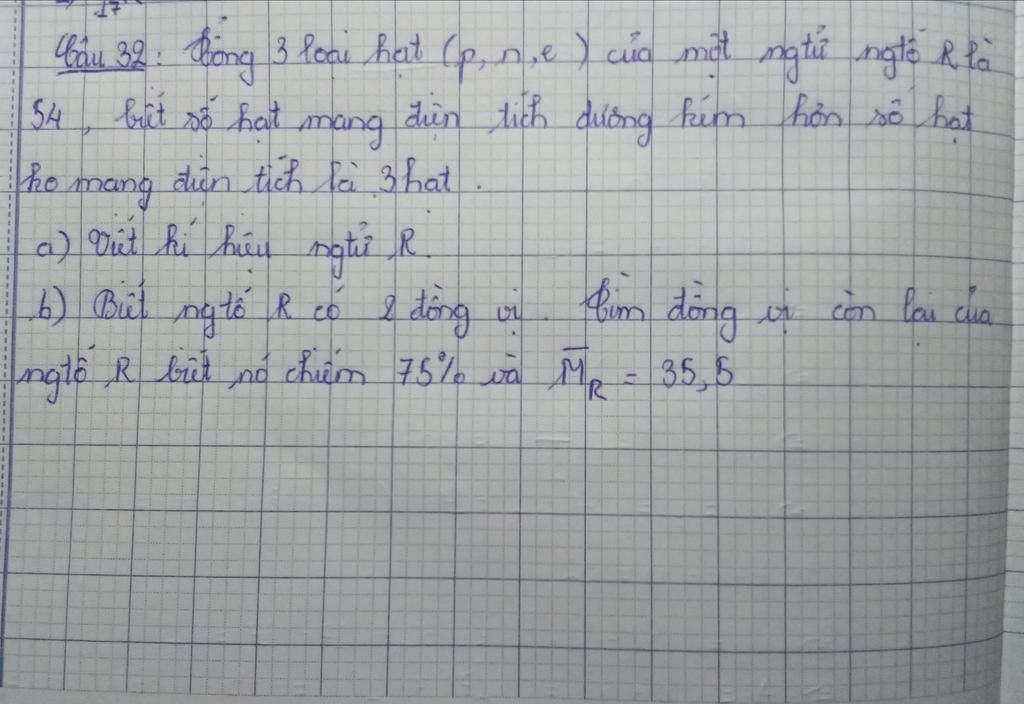 17
Câu 32: Tổng 3 loại hạt (p, n, e) của một ngtử ngtố R là
54, biết số hạt mang điện tích dương kém hơn số hạt
ko mang điện tích là 3 hạt.
a) Viết kí hiệu ngtử R.
b) Biết ngtố R có 2 đồng vị. Tìm đồng vị còn lại của
ngtố R biết nó chiếm 75% và M̄R = 35,5